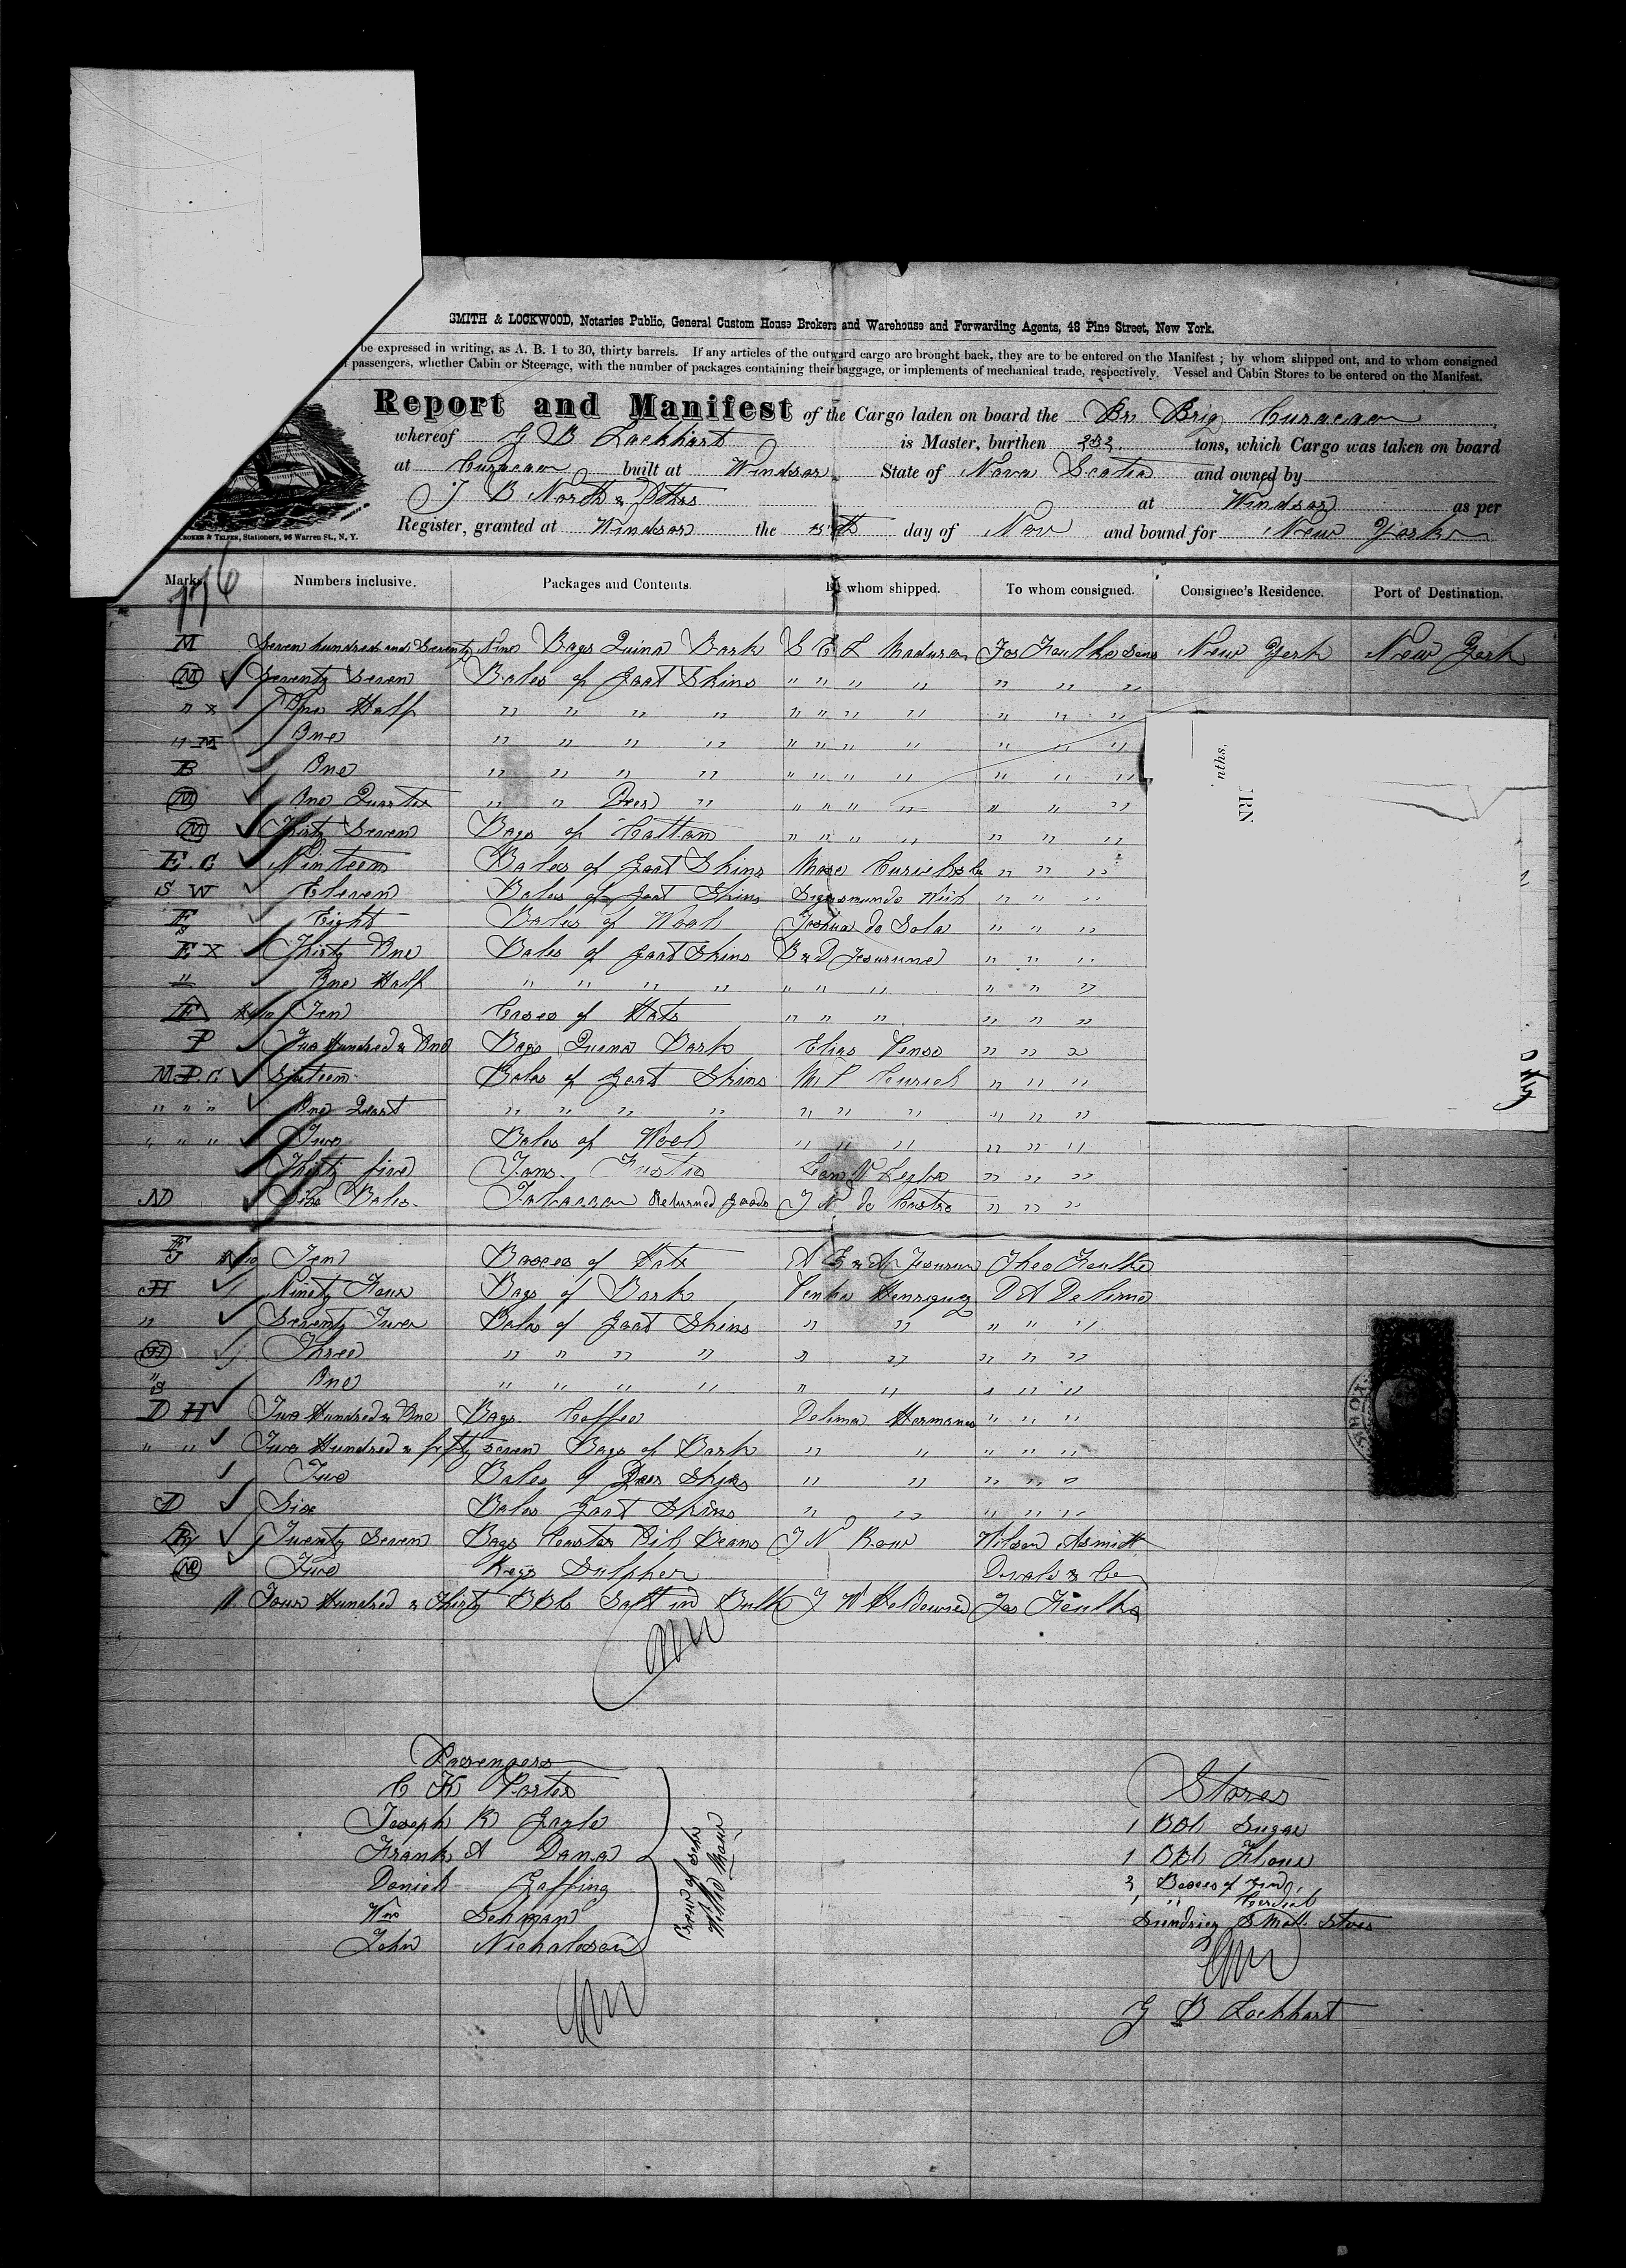 SMITH & LOCKWOOD, Notaries Public, General Custom House Brokers and Warehouse and Forwarding Agents, 48 Pine Street, New York.
be expressed in writing, as A. B. 1 to 30, thirty barrels. If any articles of the outward cargo are brought back, they are to be entered on the Manifest ; by whom shipped out, and to whom consigned
passengers, whether Cabin or Steerage, with the number of packages containing their baggage, or implements of mechanical trade, respectively. Vessel and Cabin Stores to be entered on the Manifest.
Report and Manifest of the Cargo laden on board the Br Brig Curacao
whereof G B Lockhart is Master, burthen 232 tons, which Cargo was taken on board
at Curacao built at Windsor State of Nova Scotia and owned by
J B North & Others at Windsor as per
Register, granted at Windsor the 15th day of Nov and bound for New York
& TELFER, Stationers, 96 Warren St., N. Y.
176
Marks. Numbers inclusive. Packages and Contents. By whom shipped. To whom consigned. Consignee's Residence. Port of Destination.
M Seven hundred and Seventy Nine Bags Quina Bark S E L Maduro Jos Foulke Sons New York New York
M Seventy Seven Bales of Goat Skins " " " " " " "
" x One Half " " " " " " " " " " "
" M One " " " " " " " " " " "
B One " " " " " " " " " " "
M One Quarter " " Deer " " " " " " " "
M Thirty Seven Bags of Cottan " " " " " " "
E. C Ninteen Bales of Goat Skins " " "
S W Eleven Bales of Goat Skins Sigismundo " " "
Eight Bales of Wool Joshua de Sola " " "
E X Thirty One Bales of Goat Skins B & D Jesurune " " "
" One Half " " " " " " " " " "
E Ten Cases of Hats " " " " " "
P Two Hundred & One Bags Quina Bark Elias Penso " " "
M P. C Sixteen Bales of Goat Skins M P Curiel " " "
" " " One Quart " " " " " " " " " "
" " " Two Bales of Wool " " " " " "
Thirty five Tons Fustic " " "
ND Bales Tobacco Returned Goods J N de Castro " " "
Ten Boxes of Hats A E & M Jesurun Theo Foulke
H Ninety Four Bags of Bark Penha Henriquez D A De Lima
" Seventy Two Bales of Goat Skins " " " " "
H Three " " " " " " " " "
" S One " " " " " " " " "
D H Two Hundred & One Bags Coffee Delima Hermanos " " "
" " Two Hundred & fifty seven Bags of Bark " " " " "
Two Bales of Deer Skins " " " " "
D Six Bales Goat Skins " " " " "
Twenty Seven Bags Castor Oil Beans J N Wilson Asmith
Two Kegs Sulpher & Co
Four Hundred & Thirty BBls Salt in Bulk Jos Foulke
Passengers
C K Porter
Joseph R Gayle
Frank A Dana
Daniel Gaffing
Wm Sehman
John Nichalson
Crew of Schr
Stores
1 Bbl Sugar
1 Bbl Flour
2 Boxes of
1 " Cordial
Sundries Small Stores
G B Lockhart